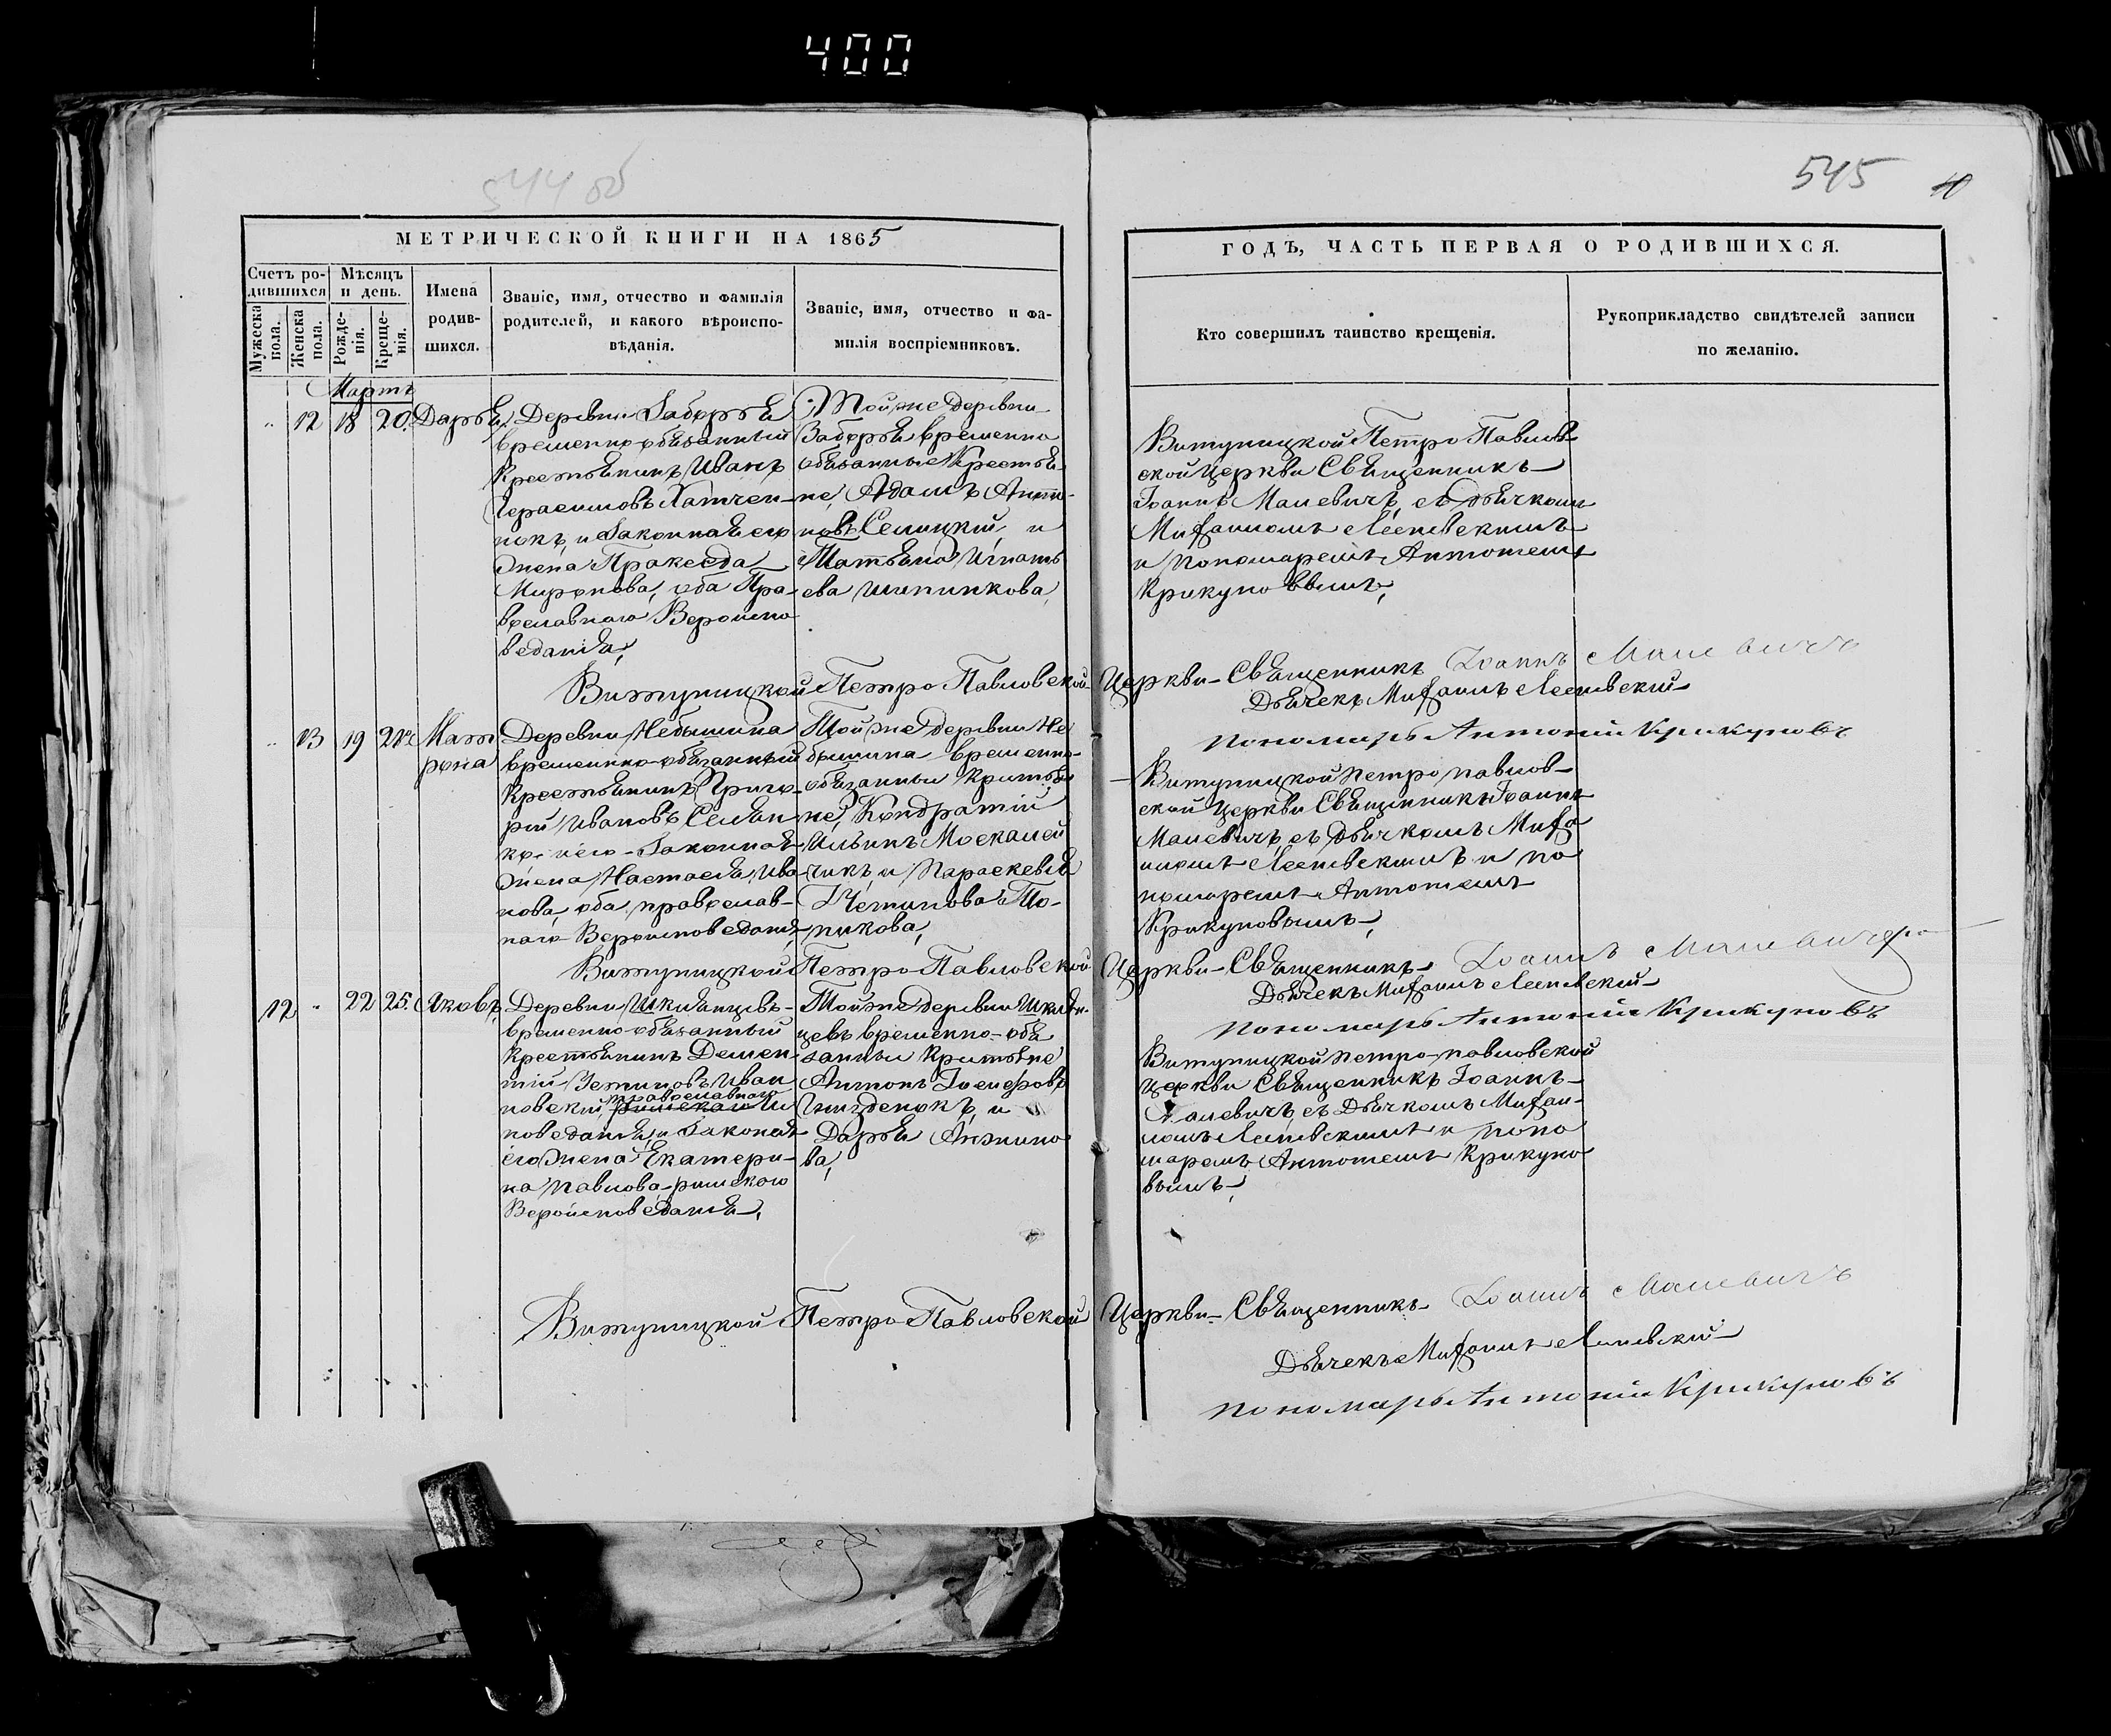 400
544 об
545
10
МЕТРИЧЕСКОЙ КНИГИ НА 1865
Счетъ ро-
дившихся
Мужеска
пола.
Женска
пола.
Мѣсяцъ
и день.
Рожде-
нія.
Креще-
нія.
Имена
родив-
шихся.
Званіе, имя, отчество и фамилія
родителей, и какого вѣроиспо-
вѣданія.
Званіе, имя, отчество и фа-
милія воспріемниковъ.
ГОДЪ, ЧАСТЬ ПЕРВАЯ О РОДИВШИХСЯ.
Кто совершилъ таинство крещенія.
Рукоприкладство свидѣтелей записи
по желанію.
Мартъ
12 18 20. Дарья
Деревни Заборья
временнообязанный
Крестьянинъ Иванъ
Герасимовъ Хатчен-
нокъ, и Законная его
Жена Пракседа
Миронова, оба Пра-
вославнаго Вероиспо
веданія,
Той же деревни
Заборья временно
обязанные Крестья
не, Адамъ Анто-
новъ Селицкій и
Татьяна Игнать
ева
Витуницкой Петро Павлов-
ской церкви Священникъ
Іоаннъ Малевичъ, съ дьячкомъ
и пономаремъ Антоніемъ
Крикуновымъ,
Витуницкой Петро Павловской Церкви Священникъ Іоаннъ Малевичъ
Дьячекъ
Пономарь Антоній Крикуновъ
13 19 21 Мат
рона
Деревни Небышина
временно-обязанный
Крестьянинъ Григо
рій Ивановъ Селян
ко, и его Законная
Жена Настасья Ива
нова, оба православ-
наго Вероисповеданія,
Той же деревни Не
бышина временно-
обязанные
не, Кондратій
Ильинъ Москалей
чикъ, и Параскевія
Витуницкой Петро Павлов-
ской Церкви Священникъ Іоаннъ
Малевичъ, съ дьячкомъ
и по
номаремъ Антоніемъ
Крикуновымъ,
Витуницкой Петро Павловской Церкви Священникъ Іоаннъ Малевичъ
Дьячекъ
Пономарь Антоній Крикуновъ
12 22 25. Яковъ
Деревни Шкилянцевъ
временно обязанный
Крестьянинъ Демен
тій Устиновъ Иван
новскій православнаго Ис
поведанія, и Законная
его Жена Екатери-
на Павлова, римскаго
Вероисповеданія,
Той же деревни Шкилян-
цевъ временно-обя
занные
Антонъ Іосифовъ
и
Дарья Антоно
ва,
Витуницкой Петро-Павловской
Церкви Священникъ Іоаннъ
Малевичъ, съ Дьячкомъ
и поно
маремъ Антоніемъ Крикуно
вымъ,
Витуницкой Петро Павловской Церкви Священникъ Іоаннъ Малевичъ
Дьячекъ
Пономарь Антоній Крикуновъ